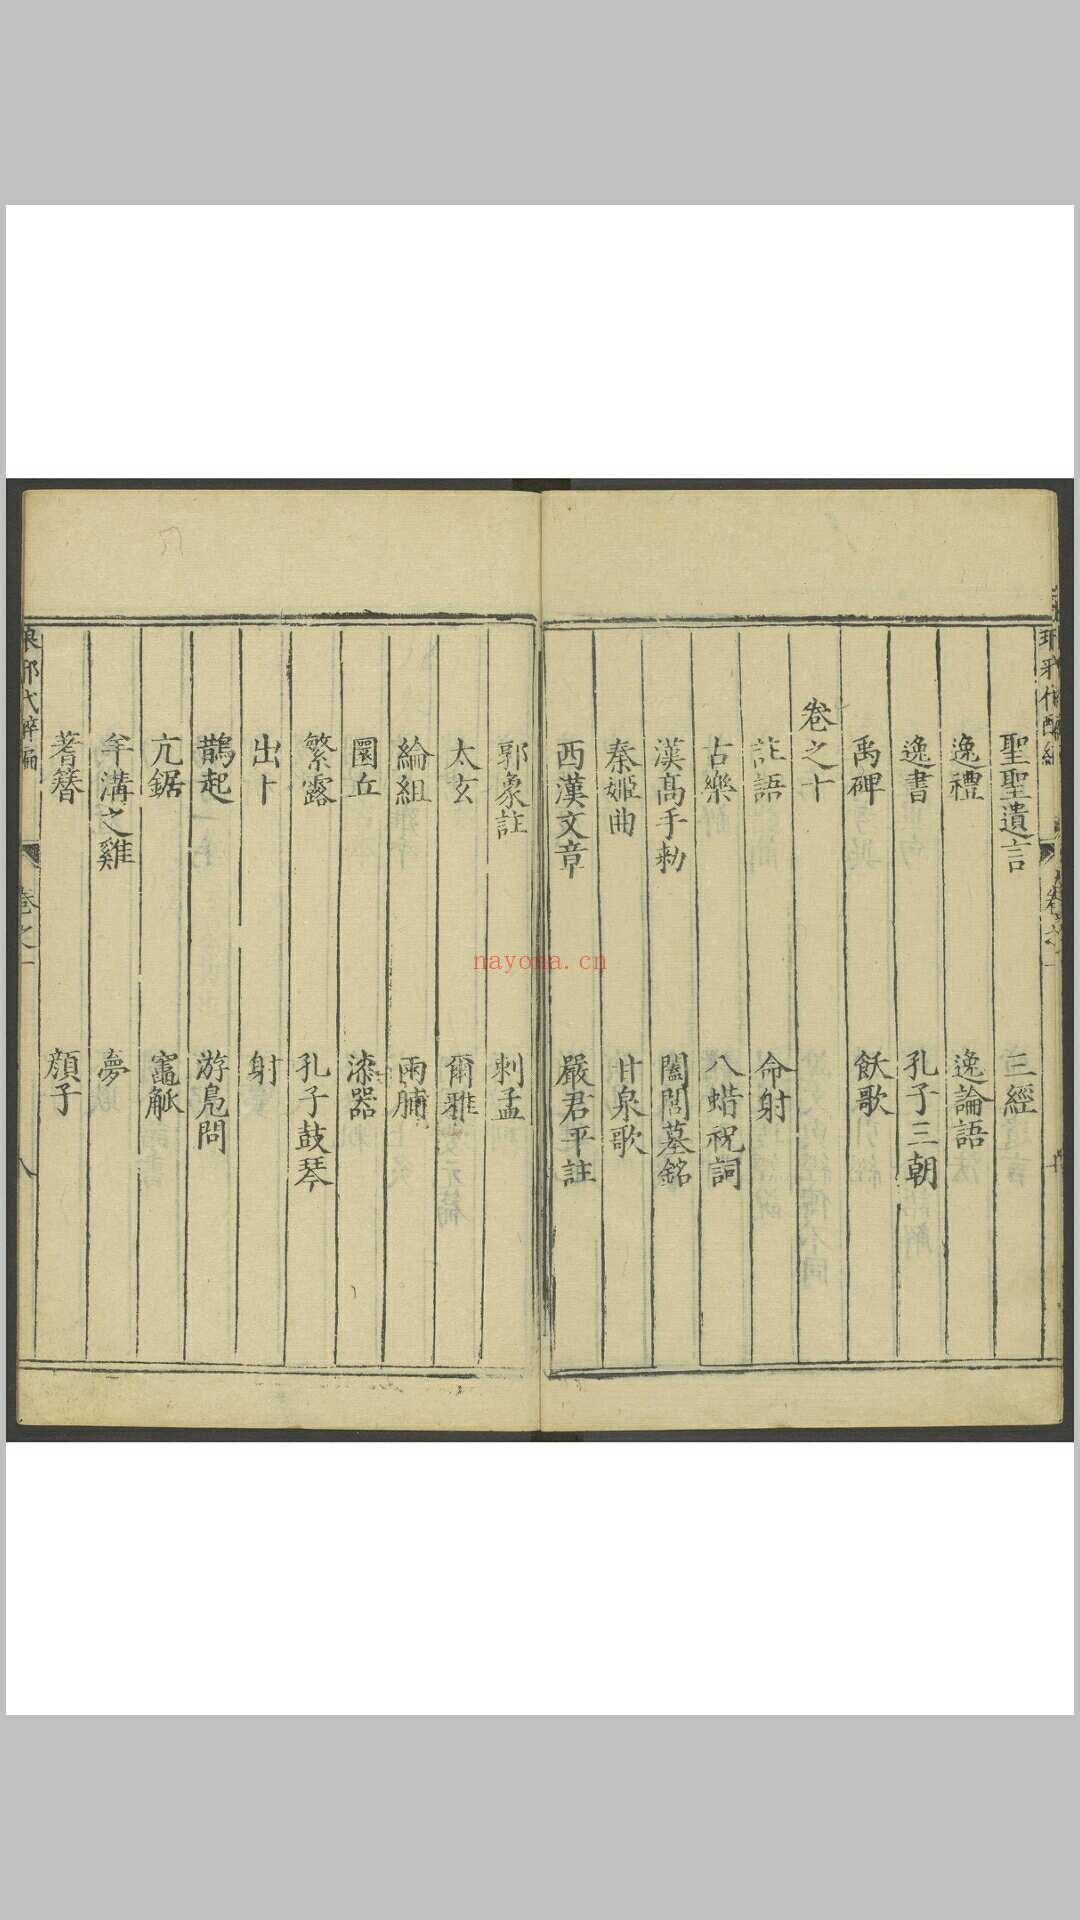 聖聖遺言　三經
逸禮　逸論語
逸書　孔子三朝
禹碑　飫歌
卷之十
註語　命射
古樂　八蜡祝詞
漢高手勑　闔閭墓銘
秦姬曲　甘泉歌
西漢文章　嚴君平註
郭象註　刺孟
太玄　爾雅
綸組　雨脯
圜丘　漆器
繁露　孔子鼓琴
出卜　射
鵲起　游鳧問
亢鋸　竈觚
羊溝之雞　夢
蓍簪　顏子
琅邪代醉編　卷之一　八
nayona.cn